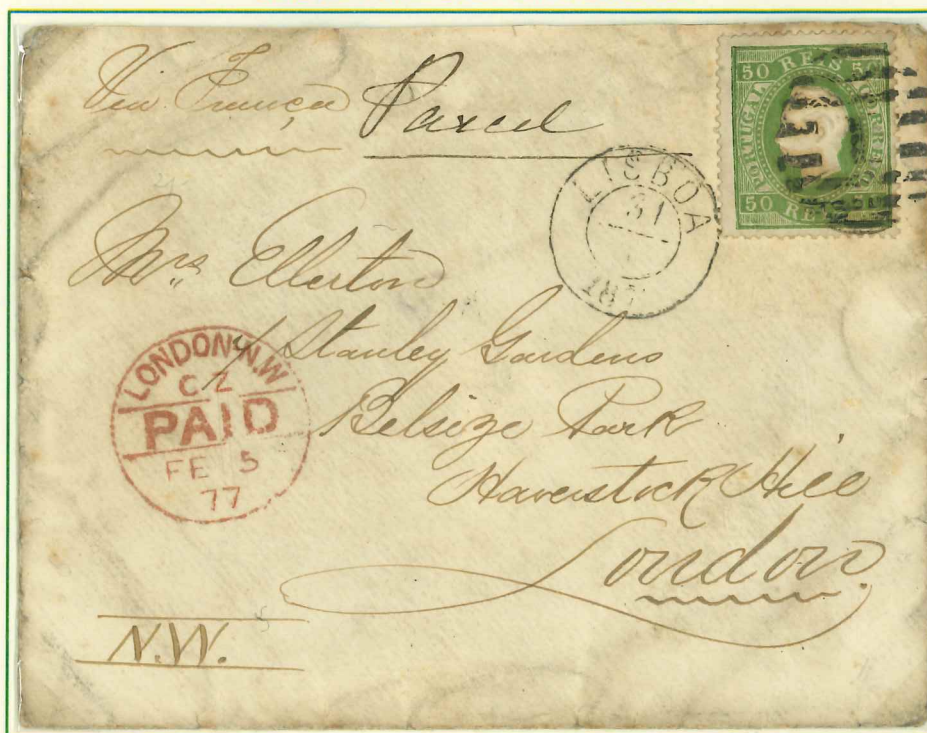 Via França Parcel
50 REIS 50
PORTUGAL CORREIO
50 REIS
LISBOA
31
1
187
Mrs Ellerton
4 Stanley Gardens
Belsize Park
Haverstock Hill
London
N.W.
LONDON N.W
CZ
PAID
FE 5
77